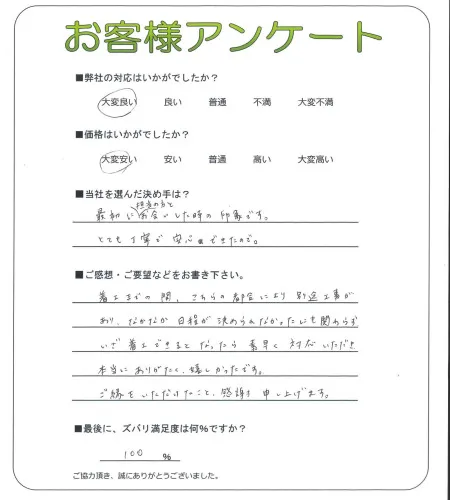 お客様アンケート
■弊社の対応はいかがでしたか?
大変良い 良い 普通 不満 大変不満
■価格はいかがでしたか?
大変安い 安い 普通 高い 大変高い
■当社を選んだ決め手は?
担当の方と
最初にお会いした時の印象です。
とても丁寧で安心できたので。
■ご感想・ご要望などをお書き下さい。
着工までの間、こちらの都合により別途工事が
あり、なかなか日程が決められなかったにも関わらず
いざ着工できるとなったら素早く対応いただき
本当にありがたく、嬉しかったです。
ご縁をいただけたこと、感謝申し上げます。
■最後に、ズバリ満足度は何%ですか?
100 %
ご協力頂き、誠にありがとうございました。